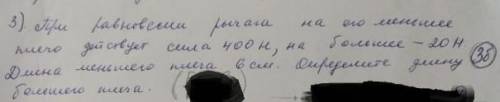 3) При равновесии рычага на его меньшее
плечо действует сила 400 Н, на большее – 20 Н
Длина меньшего плеча 6 см. Определите длину
большего плеча.
3б